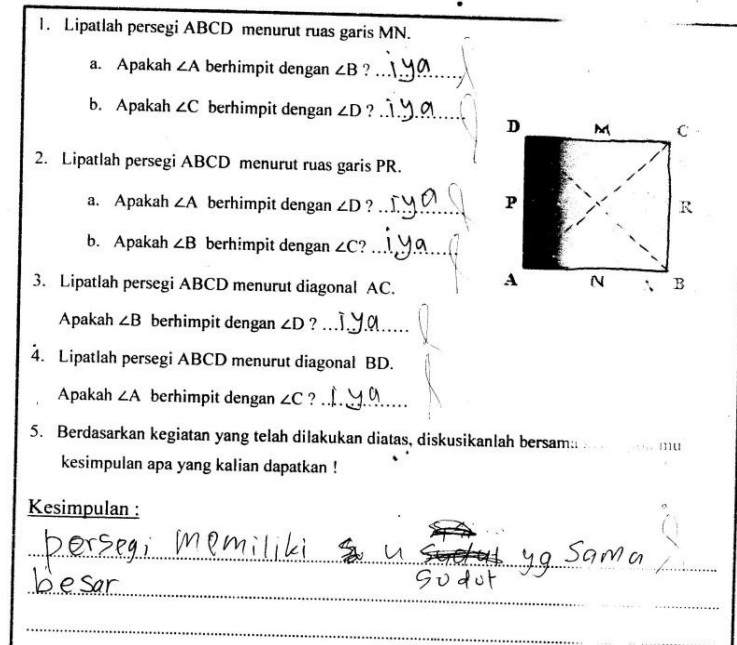 1. Lipatlah persegi ABCD menurut ruas garis MN.
a. Apakah ∠A berhimpit dengan ∠B ? ...iya......
b. Apakah ∠C berhimpit dengan ∠D ? ..iya.....
D M C
2. Lipatlah persegi ABCD menurut ruas garis PR.
a. Apakah ∠A berhimpit dengan ∠D ? ..iya......
P R
b. Apakah ∠B berhimpit dengan ∠C? ...iya.....
3. Lipatlah persegi ABCD menurut diagonal AC.
A N B
Apakah ∠B berhimpit dengan ∠D ? ...iya.....
4. Lipatlah persegi ABCD menurut diagonal BD.
Apakah ∠A berhimpit dengan ∠C ? ..iya....
5. Berdasarkan kegiatan yang telah dilakukan diatas, diskusikanlah bersama mu
kesimpulan apa yang kalian dapatkan !
Kesimpulan :
persegi memiliki 4 sudut yg sama
besar